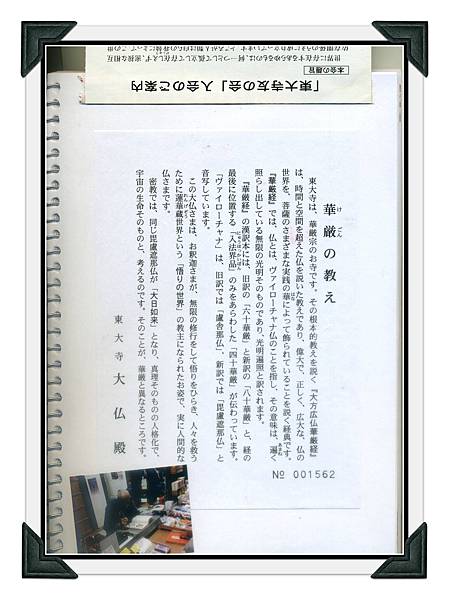 「東大寺友の会」入会のご案内
本会の趣旨
世界に存在するあらゆるものは、何一つとして孤立して存在せず、密接な相互
華厳の教え
東大寺は、華厳宗のお寺です。その根本的教えを説く『大方広仏華厳経』
は、時間と空間を超えた仏を説いた教えであり、偉大で、正しく、広大な、仏の
世界を、菩薩のさまざまな実践の華によって飾られていることを説く経典です。
『華厳経』では、仏とは、ヴァイローチャナ仏のことを指し、その意味は、遍く
照らし出している無限の光明そのものであり、光明遍照と訳されます。
『華厳経』の漢訳本には、旧訳の「六十華厳」と新訳の「八十華厳」と、経の
最後に位置する「入法界品」のみをあらわした「四十華厳」が伝わっています。
「ヴァイローチャナ」は、旧訳では「盧舎那仏」、新訳では「毘盧遮那仏」と
音写しています。
この大仏さまは、お釈迦さまが、無限の修行をして悟りをひらき、人々を救う
ために蓮華蔵世界という「悟りの世界」の教主になられたお姿で、実に人間的な
仏さまです。
密教では、同じ毘盧遮那仏が「大日如来」となり、真理そのものの人格化で、
宇宙の生命そのものと、考えるのです。そのことが、華厳と異なるところです。
東大寺 大仏殿
№ 001562